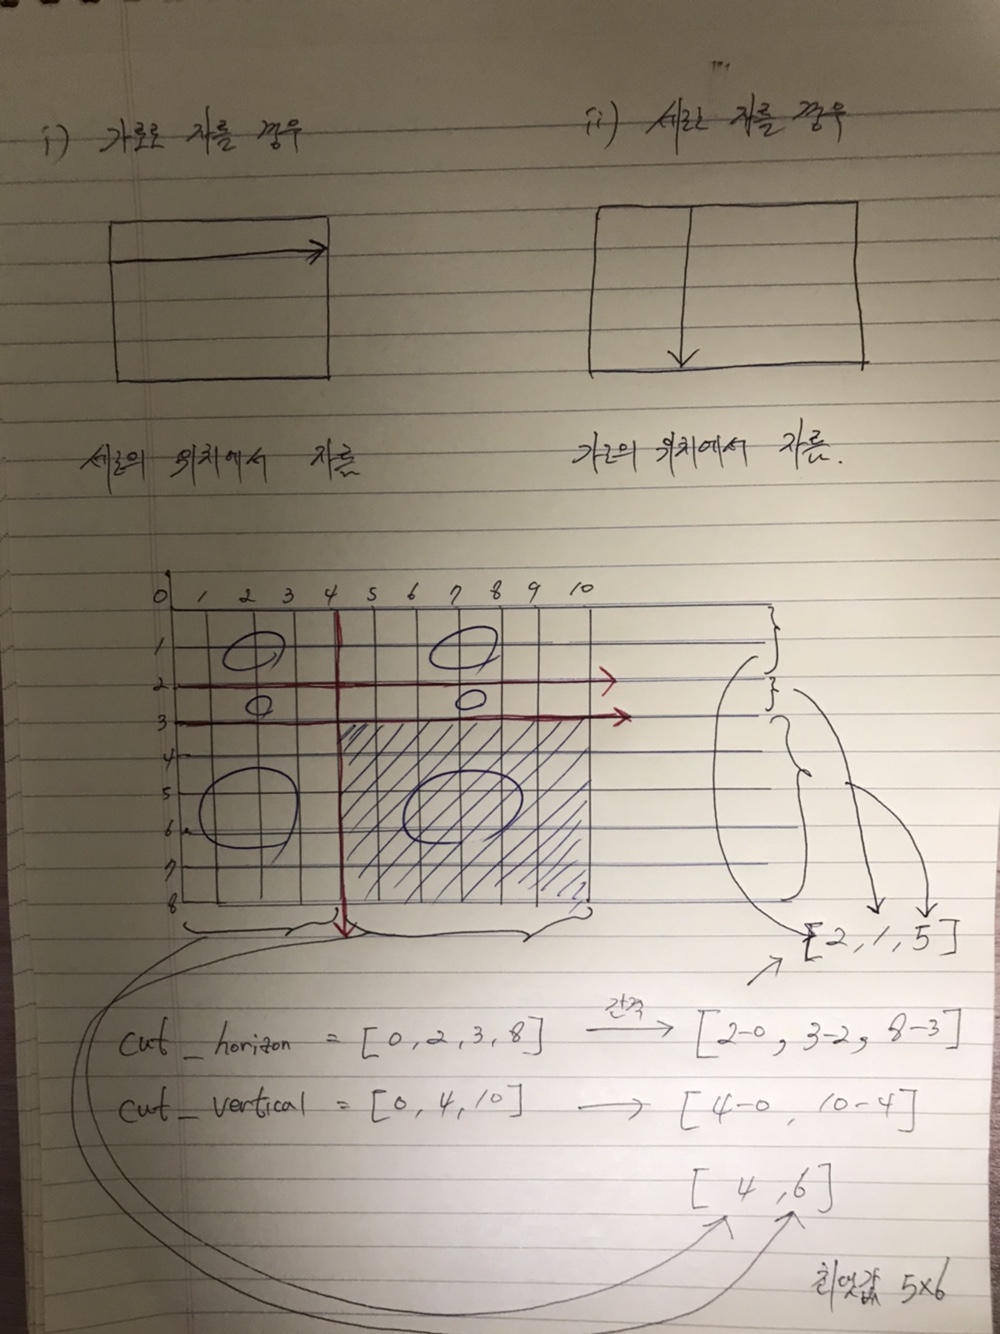 i) 가로로 자를 경우
ii) 세로로 자를 경우
세로의 위치에서 자름
가로의 위치에서 자름.
0 1 2 3 4 5 6 7 8 9 10
1
2
3
4
5
6
7
8
[2, 1, 5]
cut_horizon = [0, 2, 3, 8] 간격 → [2-0, 3-2, 8-3]
cut_vertical = [0, 4, 10] → [4-0, 10-4]
[4, 6]
최댓값 5×6